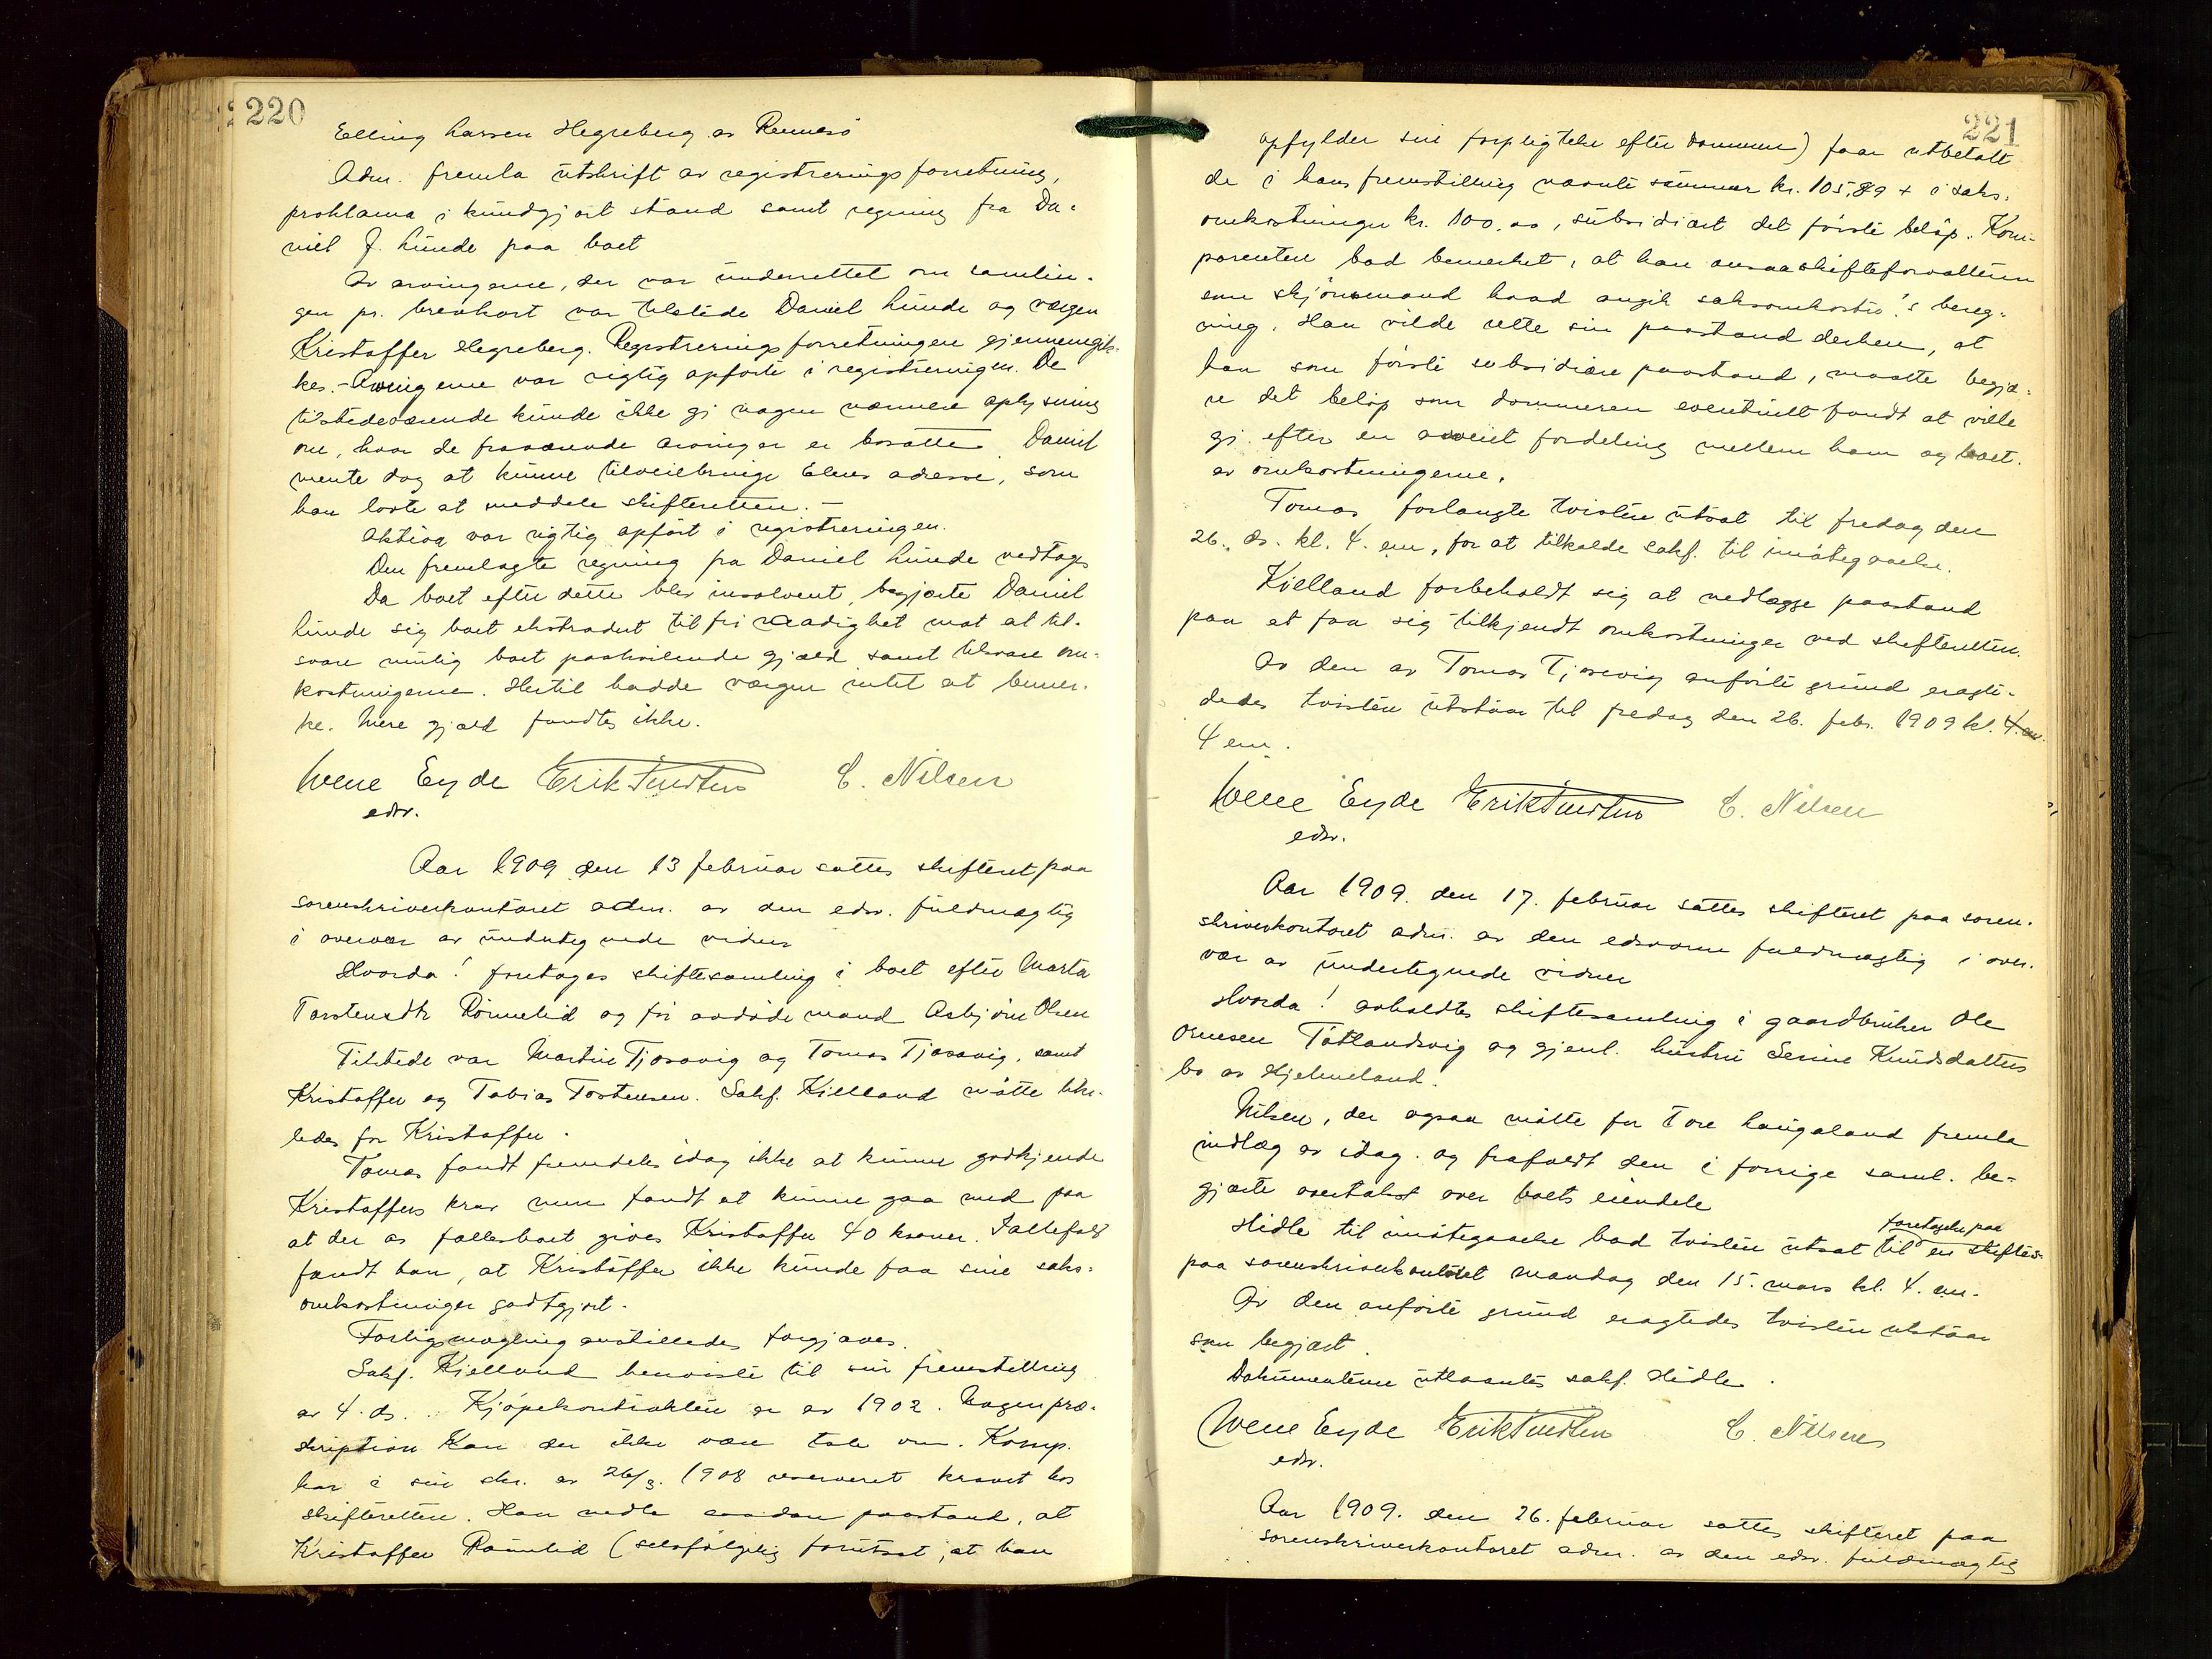 220
Elling Larsen Hegreberg av Rennesö
Adm. fremla utskrift av registreringsforretning,
proklama i kundgjort stand samt regning fra Da-
niel J. Lunde paa boet
Av arvingerne, der var underrettet om samlin-
gen pr. brevkort var tilstede Daniel Lunde og vergen
Kristoffer Hegreberg. Registreringsforretningen gjennemgik-
kes. - Arvingerne var rigtig opförte i registreringen. De
tilstedeværende kunde ikke gi nogen nærmere oplysning
om, hvor de fraværende arvinger er bosatte. Daniel
mente dog at kunne tilveiebringe Elens adresse, som
han lovte at meddele skifteretten. -
Aktiva var rigtig opfört i registreringen.
Den fremlagte regning fra Daniel Lunde vedtoges
Da boet efter dette blev insolvent, begjærte Daniel
Lunde sig boet ekstradert til fri raadighet mot at til-
svare mulig boet paahvilende gjæld samt tilsvare om-
kostningerne. Hertil hadde vergen intet at bemer-
ke. Mere gjæld fandtes ikke.
Wene Eyde Erik Knudsen C. Nilsen
edsv.
Aar 1909 den 13 februar sattes skifteret paa
sorenskriverkontoret adm. av den edsv. fuldmægtig
i overvær av undertegnede vidner
Hvorda! foretoges skiftesamling i boet efter Marta
Torstensdtr Rönnelid og för avdöde mand Asbjörn Olsen
Tilstede var Martin Tjosavig og Tomas Tjosavig, samt
Kristoffer og Tobias Torstensen. Sakf. Kielland mötte like-
ledes for Kristoffer.
Tomas fandt fremdeles idag ikke at kunne godkjende
Kristoffers krav men fandt at kunne gaa med paa
at der av fællesboet gives Kristoffer 40 kroner. Iallefald
fandt han, at Kristoffer ikke kunde faa sine saks-
omkostninger godtgjort.
Forligsmægling anstilledes forgjæves.
Sakf. Kielland henviste til sin fremstilling
av 4. ds. Kjöpekontrakten er av 1902. Nogen præ-
skription kan der ikke være tale om. Komp.
har i sin skr. av 26/3. 1908 reserveret kravet hos
skifteretten. Han nedla saadan paastand, at
Kristoffer Rönnelid (selvfölgelig forutsat, at han
221
opfylder sin forpligtelse efter dommen) faar utbetalt
de i hans fremstilling nævnte summer kr. 105,89 + i saks-
omkostninger kr. 100.00, subsidiært det förste belöp. Kom-
parenten bad bemerket, at han ansaa skifteforvalteren
som skjönsmand hvad angik saksomkostn.'s bereg-
ning. Han vilde rette sin paastand derhen, at
han som förste subsidiære paastand, maatte begjæ-
re det belöp som dommeren eventuelt fandt at ville
gi efter en avveiet fordeling mellem ham og boet
av omkostningerne.
Tomas forlangte tvisten utsat til fredag den
26. ds. kl. 4. em. for at tilkalde sakf. til imötegaaelse.
Kielland forbeholdt sig at nedlægge paastand
paa at faa sig tilkjendt omkostninger ved skifteretten.
Av den av Tomas Tjosevig anförte grund eragte-
dedes tvisten utstaar til fredag den 26. febr. 1909 kl. 4 em.
4 em.
Wene Eyde Erik Knudsen C. Nilsen
edsv.
Aar 1909. den 17. februar sattes skifteret paa soren-
skriverkontoret adm. av den edsvorne fuldmægtig i over-
vær av undertegnede vidner
Hvorda! avholdtes skiftesamling i gaardbruker Ole
Ormsen Töttlandsvig og gjenl. hustru Serine Knudsdatters
bo av Hjelmeland.
Nilsen, der ogsaa mötte for Tore Haugaland fremla
indlæg av idag. og frafaldt den i forrige saml. be-
gjærte overtakst over boets eiendele
Hidle til imötegaaelse bad tvisten utsat til foretagelse paa en skiftes.
paa sorenskriverkontoret mandag den 15. mars kl. 4. em.
Av den anförte grund eragtedes tvisten utstaar
som begjært.
Dokumenterne utlaantes sakf. Hidle.
Wene Eyde Erik Knudsen C. Nilsen
edsv.
Aar 1909. den 26. februar sattes skifteret paa
sorenskriverkontoret adm. av den edsv. fuldmægtig